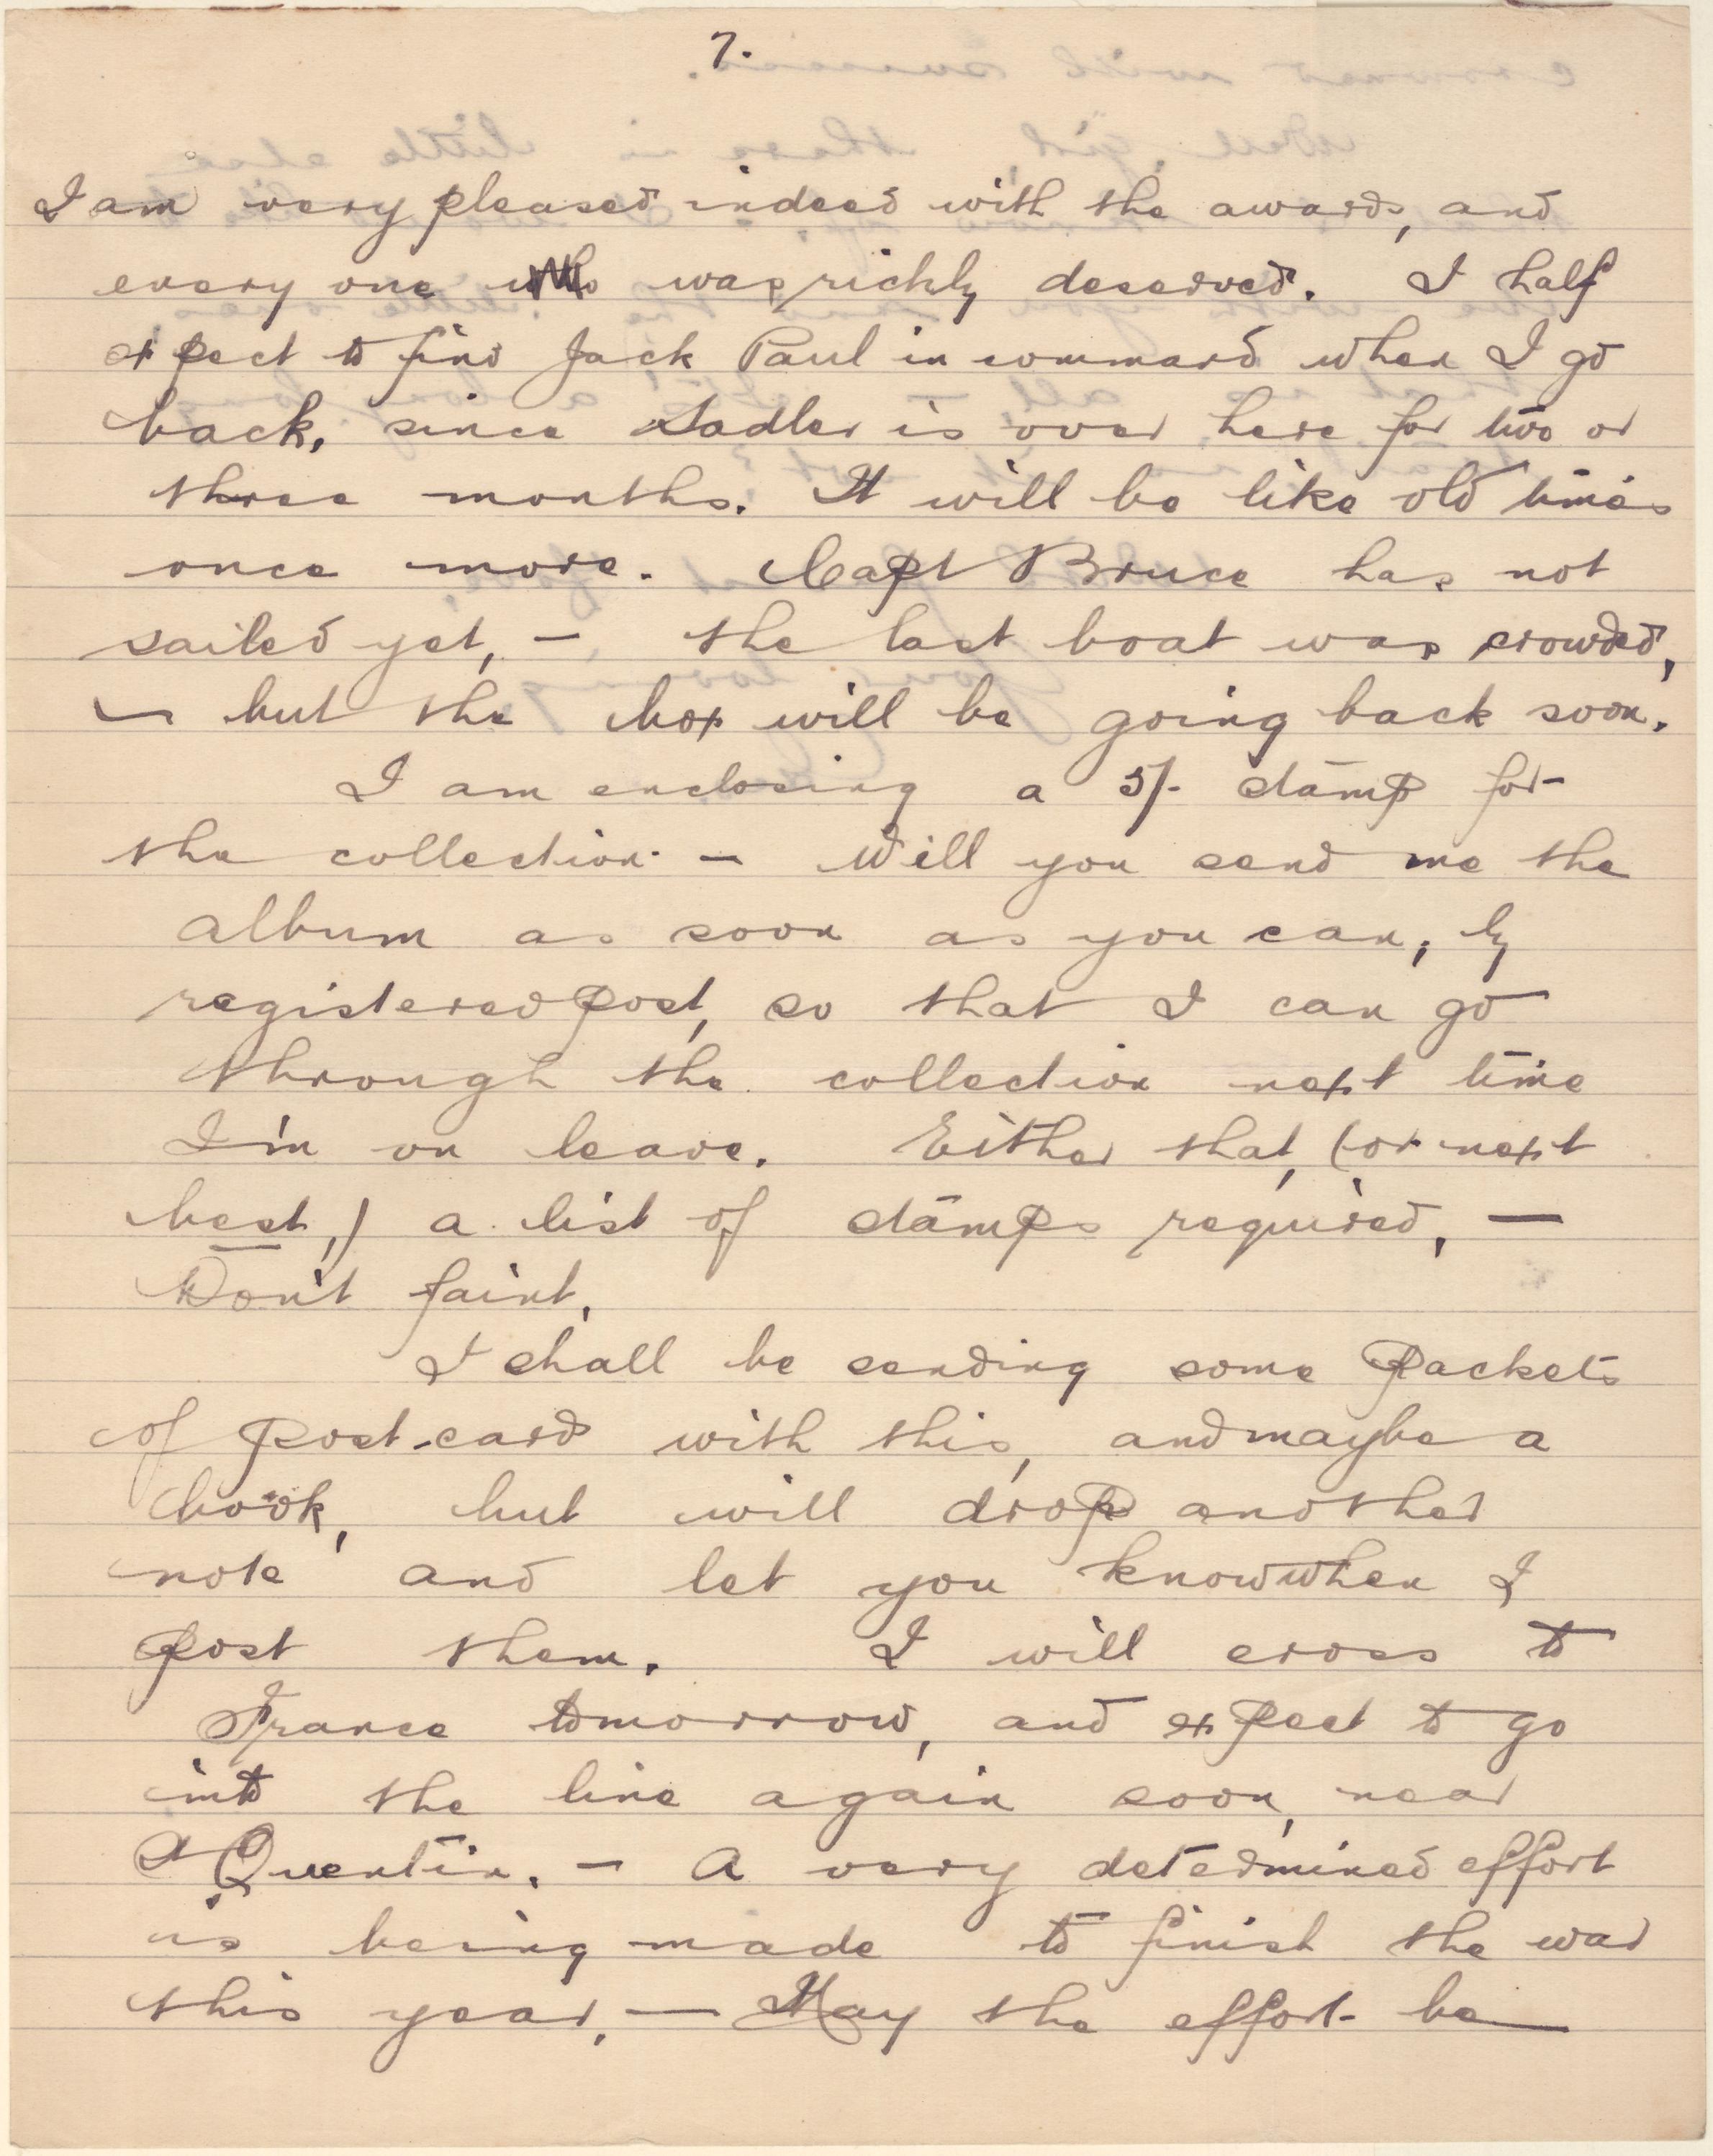 7.
I am very pleased indeed with the awards, and
every one who was richly deserved. I half
expect to find Jack Paul in command when I go
back, since Sadler is over here for two or
three months. It will be like old times
once more. Capt Bruce has not
sailed yet, — the last boat was crowded,
— but the box will be going back soon.
I am enclosing a 5/- stamp for
the collection. — Will you send me the
album as soon as you can, by
registered post, so that I can go
through the collection next time
I'm on leave. Either that, (or next
best,) a list of stamps required, —
Don't faint.
I shall be sending some packets
of post-cards with this, and maybe a
book, but will drop another
note and let you know when I
post them. I will cross to
France tomorrow, and expect to go
into the line again soon, near
St Quentin. — A very determined effort
is being made to finish the war
this year, — May the effort be